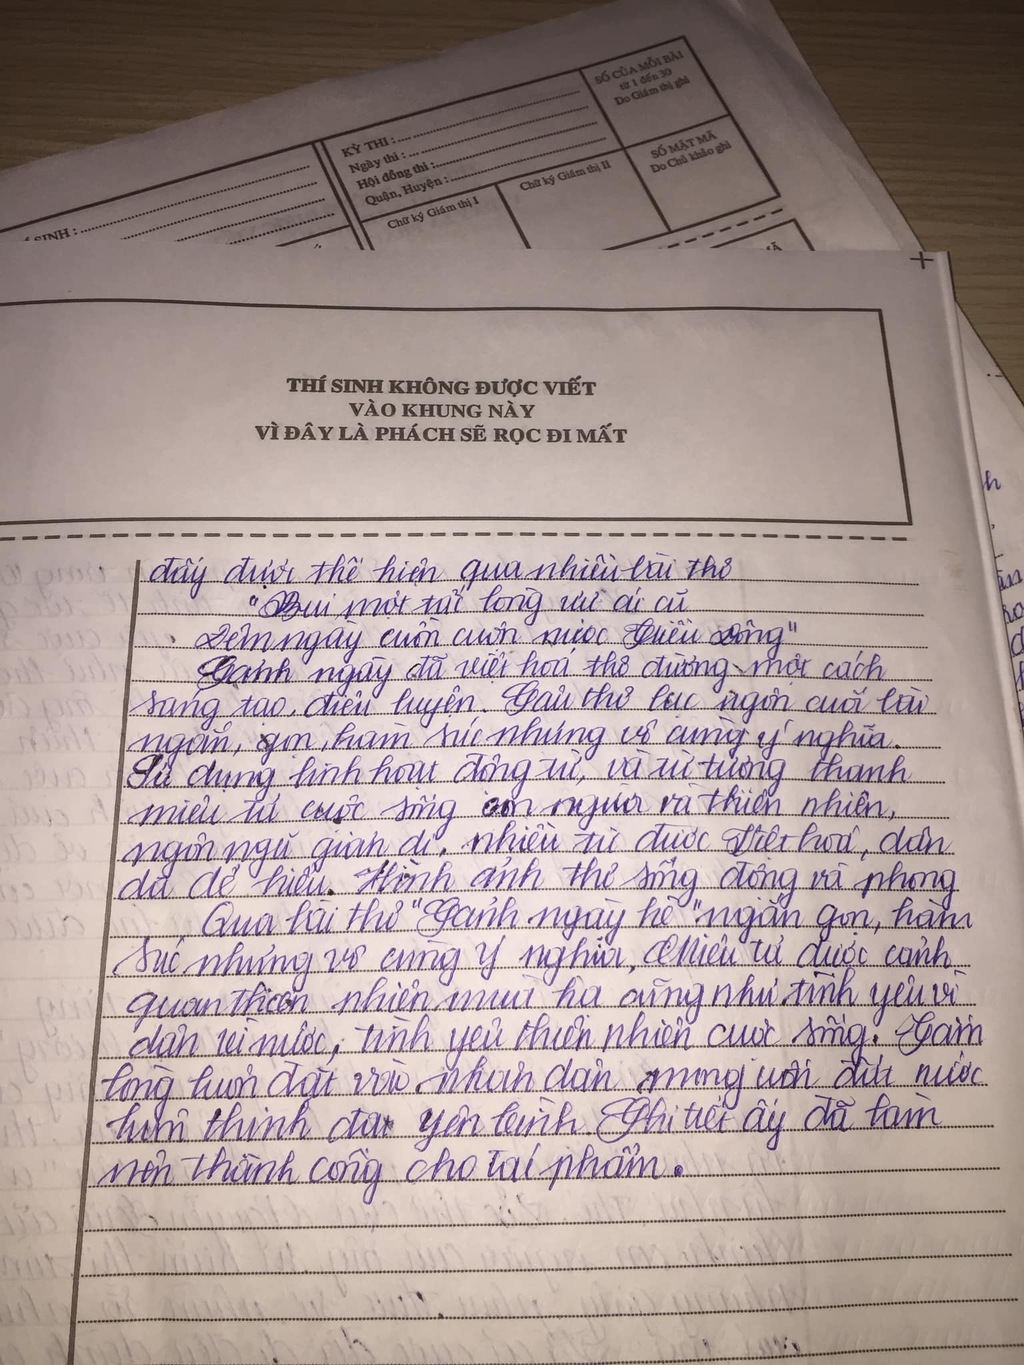 SỐ CỦA MỖI BÀI
từ 1 đến 30
Do Giám thị ghi
KỲ THI :
Ngày thi :
Hội đồng thi :
Quận, Huyện :
SỐ MẬT MÃ
Do Chủ khảo ghi
SINH :
Chữ ký Giám thị I
Chữ ký Giám thị II
THÍ SINH KHÔNG ĐƯỢC VIẾT
VÀO KHUNG NÀY
VÌ ĐÂY LÀ PHÁCH SẼ RỌC ĐI MẤT
đấy được thể hiện qua nhiều bài thơ
"Bui một tấc lòng ưu ái cũ
Đêm ngày cuồn cuộn nước triều đông"
Cảnh ngày đã việt hoá thơ đường một cách
sáng tạo, điêu luyện. Câu thơ lục ngôn cuối bài
ngắn, gọn, hàm súc nhưng vô cùng ý nghĩa.
Sử dụng linh hoạt động từ, và từ tượng thanh
miêu tả cuộc sống con người và thiên nhiên,
ngôn ngữ giản dị, nhiều từ được Việt hoá, dân
dã dễ hiểu. Hình ảnh thơ sống động và phong
Qua bài thơ "Cảnh ngày hè" ngắn gọn, hàm
súc nhưng vô cùng ý nghĩa, Miêu tả được cảnh
quan thiên nhiên mùa hạ cũng như tình yêu vì
dân vì nước, tình yêu thiên nhiên cuộc sống. Tấm
lòng luôn đặt vào nhân dân mong ước đất nước
hưng thịnh đất yên bình Chi tiết ấy đã làm
nên thành công cho tác phẩm.